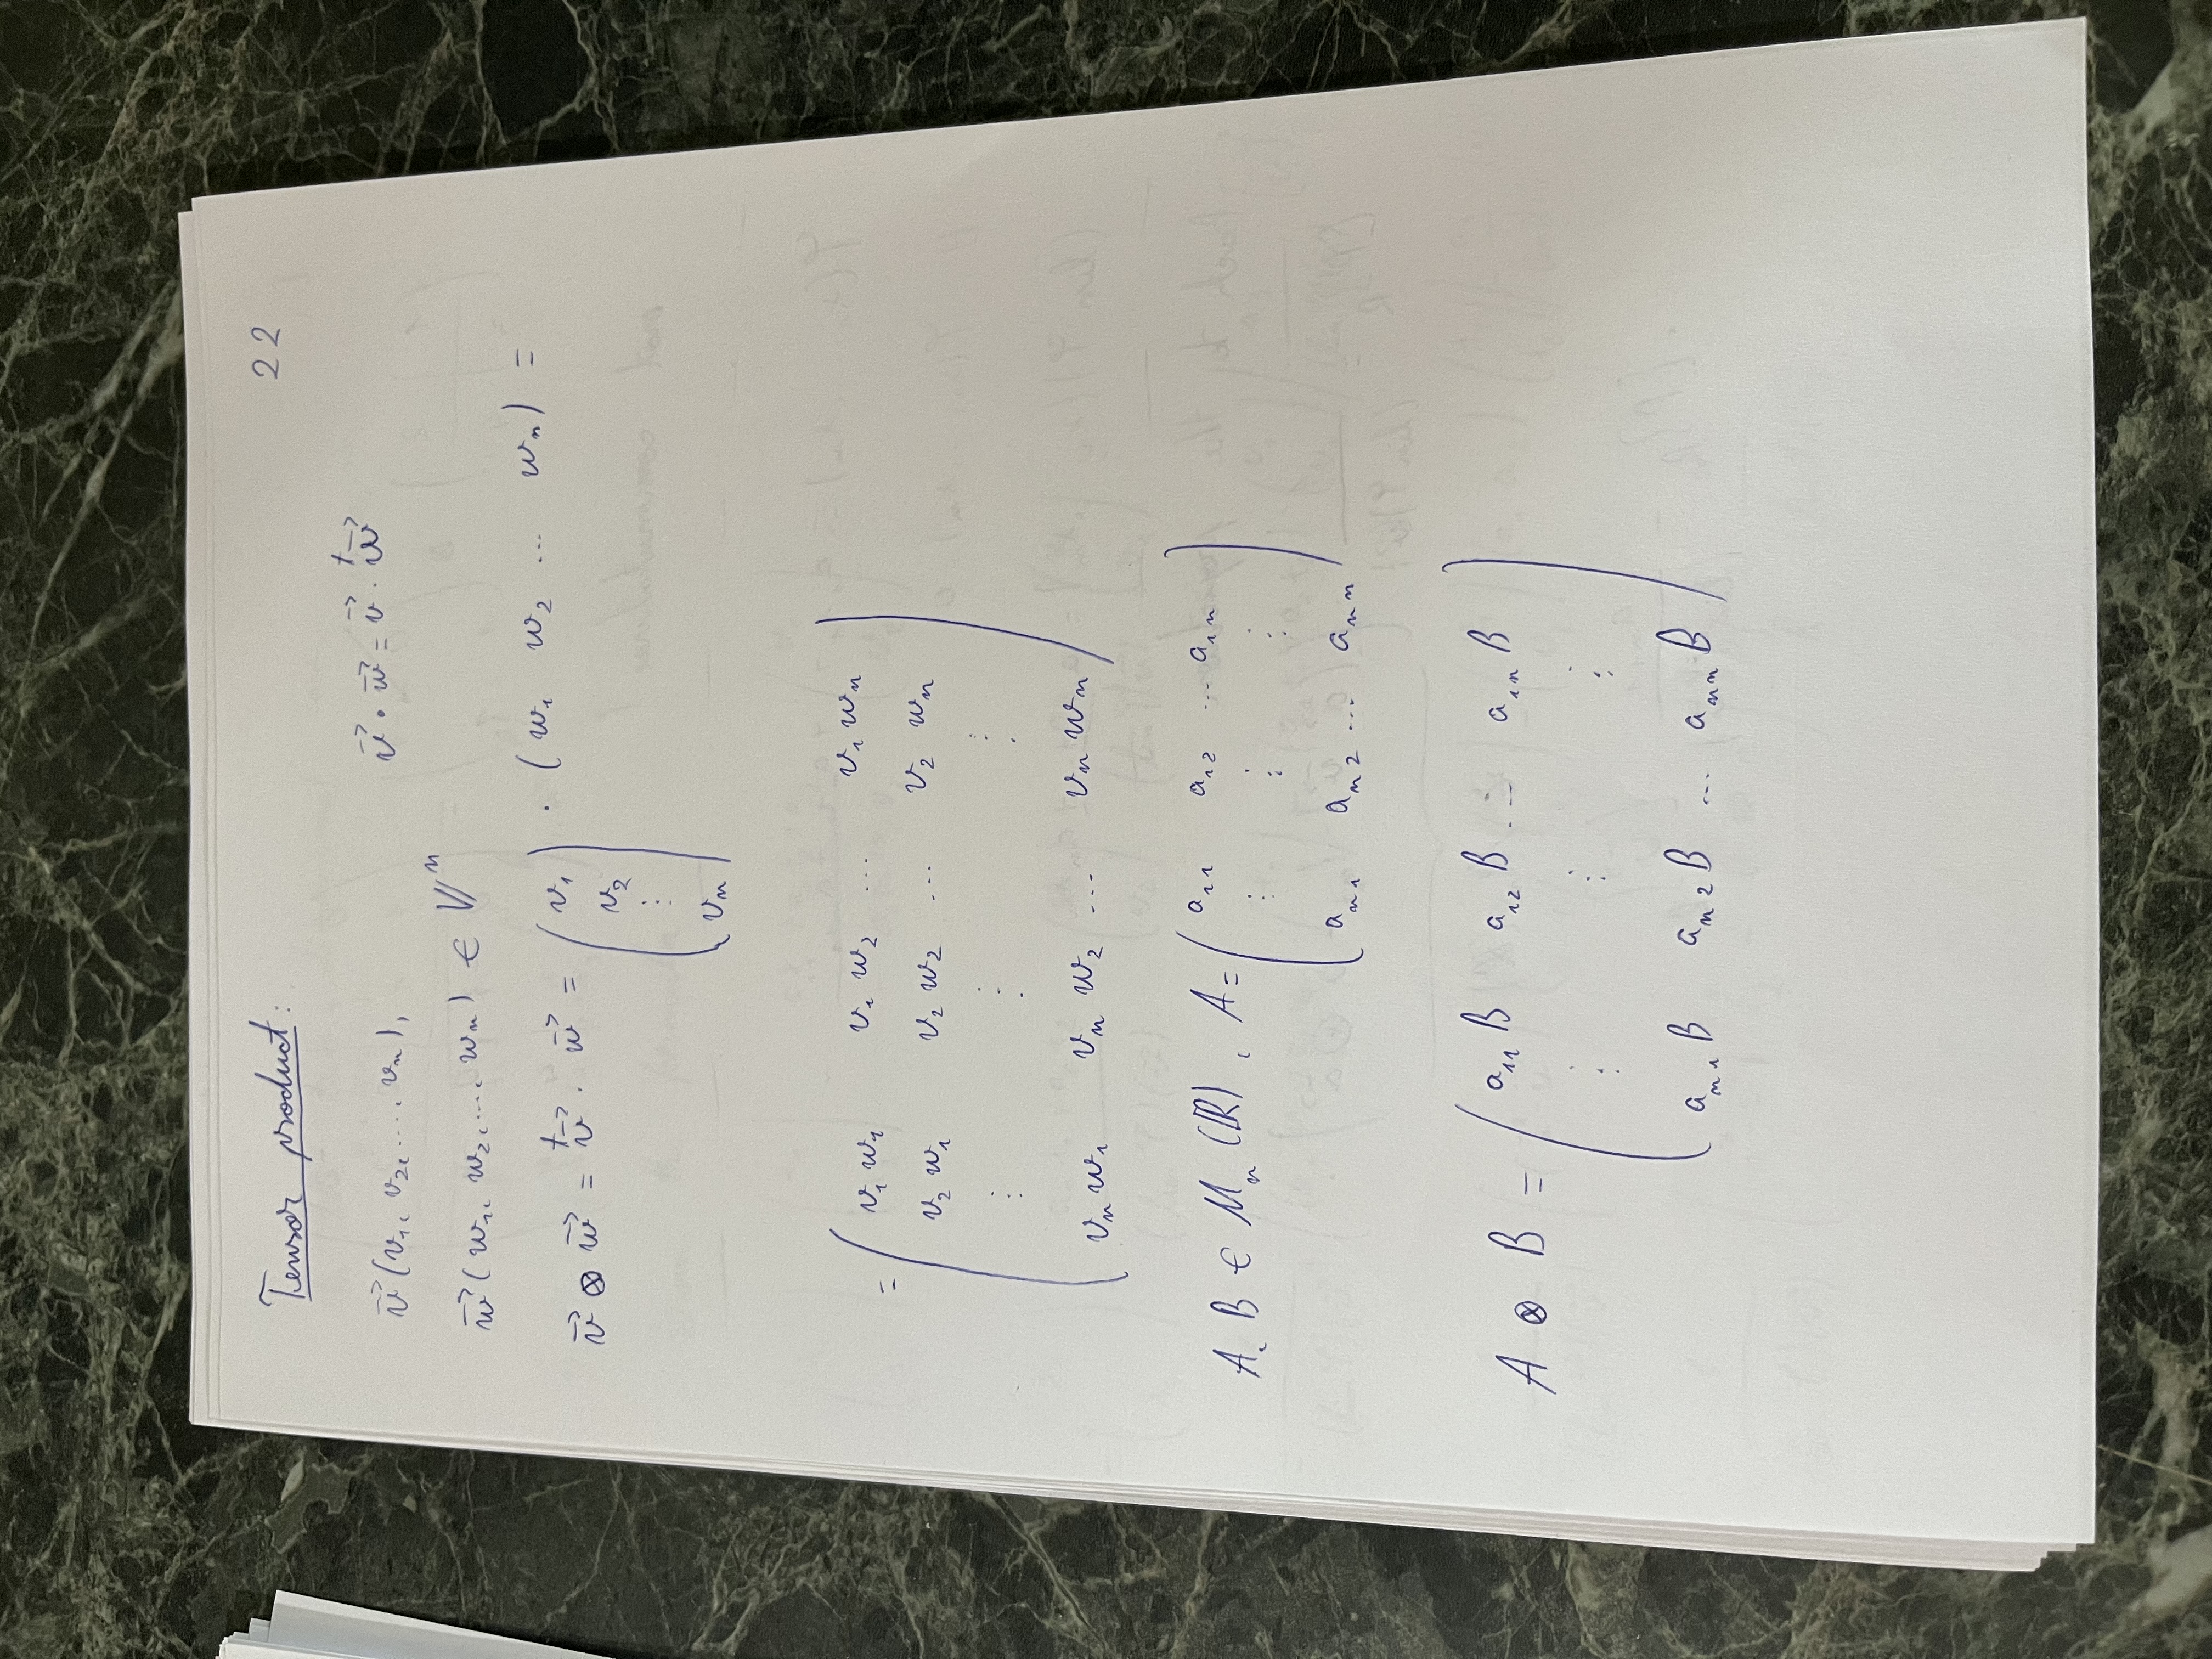 Tensor product: 22
v⃗ (v₁, v₂, ..., vₙ), v⃗ · w⃗ = v⃗ · ᵗw⃗
w⃗ (w₁, w₂, ..., wₙ) ∈ 𝕍ⁿ
v⃗ ⊗ w⃗ = ᵗv⃗ · w⃗ = ( v₁ ) · ( w₁ w₂ ... wₙ ) =
v₂
⋮
vₙ
= ( v₁ w₁ v₁ w₂ ... v₁ wₙ
v₂ w₁ v₂ w₂ ... v₂ wₙ
⋮ ⋮ ⋮
vₙ w₁ vₙ w₂ ... vₙ wₙ )
A, B ∈ Mₙ(ℝ), A = ( a₁₁ a₁₂ ... a₁ₙ
⋮ ⋮ ⋮
aₙ₁ aₙ₂ ... aₙₙ )
A ⊗ B = ( a₁₁B a₁₂B ... a₁ₙB
⋮ ⋮ ⋮
aₙ₁B aₙ₂B ... aₙₙB )